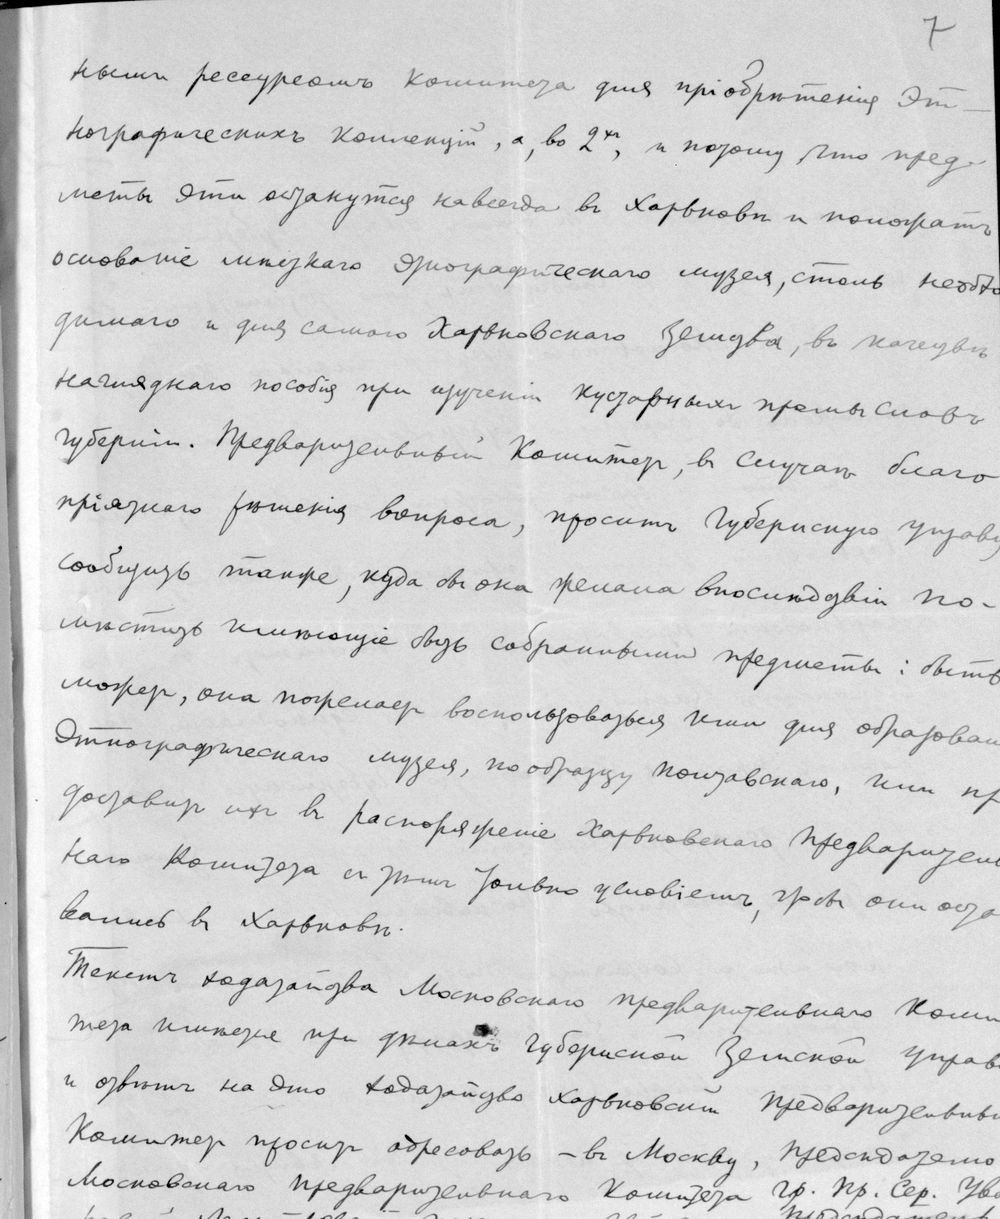 7
ными рессурсомъ Комитета для пріобрѣтенія Эт-
нографическихъ коллекцій, а, во 2хъ, и потому, что пред-
меты эти останутся навсегда въ Харьковѣ и положатъ
основаніе мѣстнаго этнографическаго музея, столь необхо
димаго и для самого Харьковскаго Земства, въ качествѣ
нагляднаго пособія при изученіи кустарныхъ промысловъ
губерніи. Предварительный Комитетъ, въ случаѣ благо
пріятнаго рѣшенія вопроса, проситъ Губернскую Управу
сообщить также, куда бы она желала впослѣдствіи по-
мѣстить имѣющіе быть собранными предметы: быть
можетъ, она пожелаетъ воспользоваться ими для образован
Этнографическаго музея, по образцу Полтавскаго, или пр
доставитъ ихъ въ распоряженіе Харьковскаго Предваритель
наго Комитета съ тѣмъ только условіемъ, чтобы они оста
вались въ Харьковѣ.
Текстъ ходатайства Московскаго предварительнаго Коми
тета имѣется при дѣлахъ Губернской Земской Управ
и отвѣтъ на это ходатайство Харьковскій Предварительны
Комитетъ проситъ адресовать – въ Москву, Предсѣдателю
Московскаго Предварительнаго Комитета гр. Пр. Сер. Ува